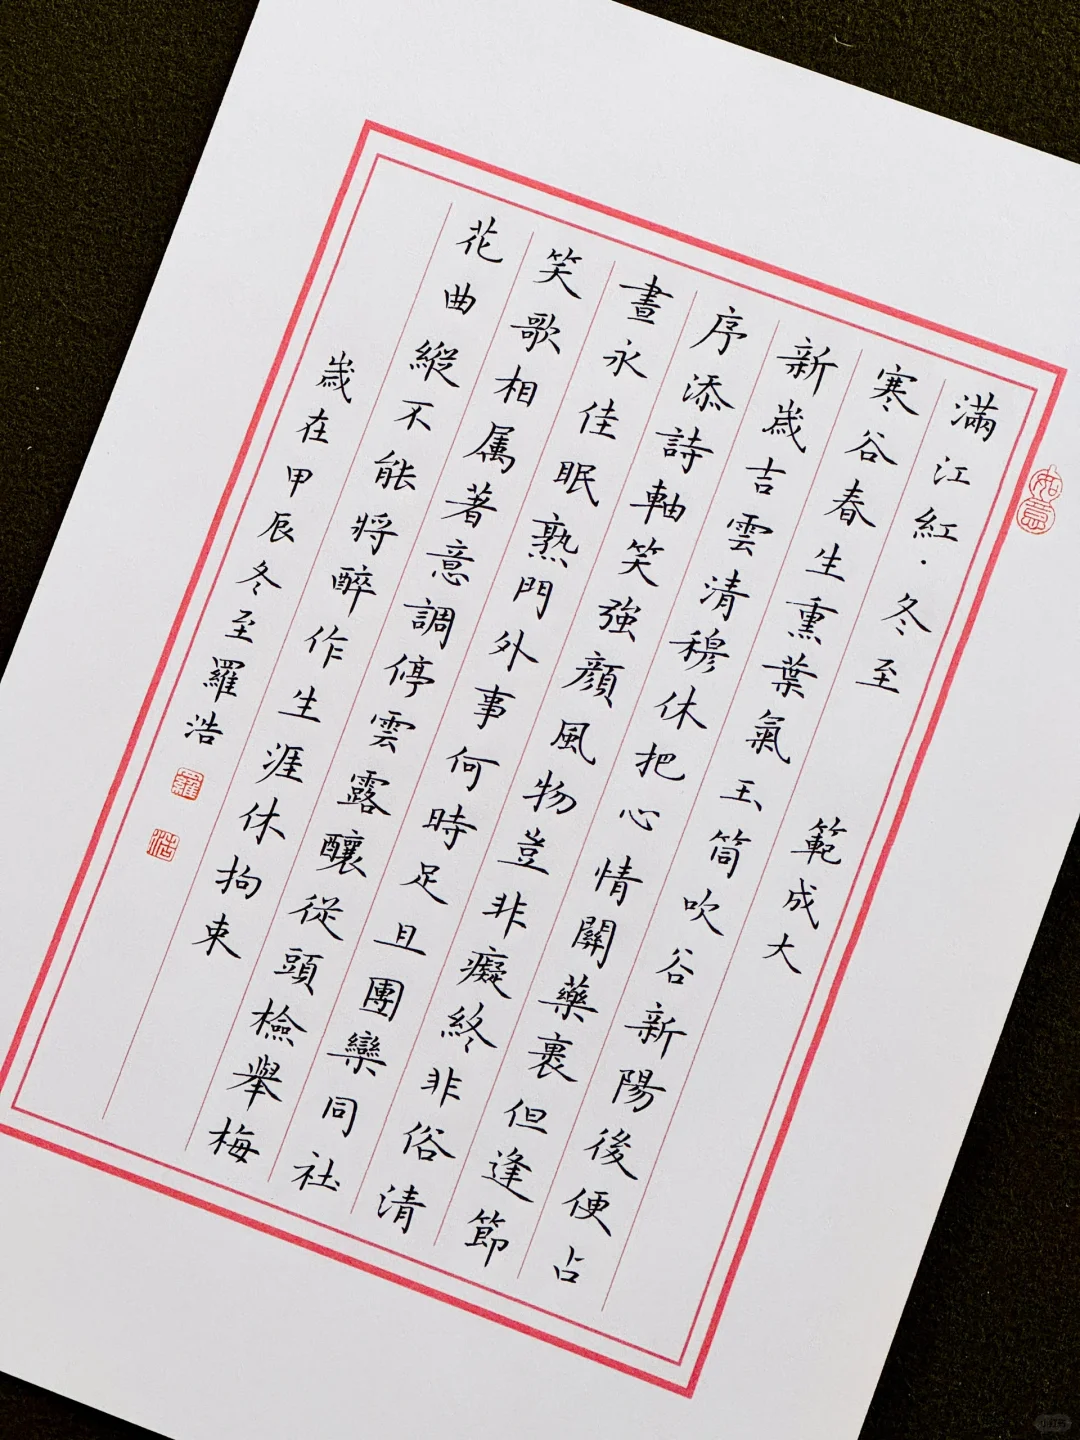 如意
滿江紅·冬至 範成大
寒谷春生熏葉氣玉筒吹谷新陽後便占
新歲吉雲清穆休把心情關藥裹但逢節
序添詩軸笑強顏風物豈非癡終非俗清
晝永佳眠熟門外事何時足且團欒同社
笑歌相属著意調停雲露釀從頭檢舉梅
花曲縱不能將醉作生涯休拘束
歲在甲辰冬至羅浩
羅
浩
小红书